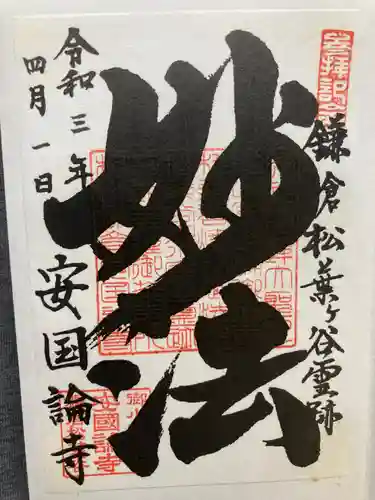 参拝記念
鎌倉松葉ヶ谷霊跡
妙法
令和三年
四月一日
安国論寺